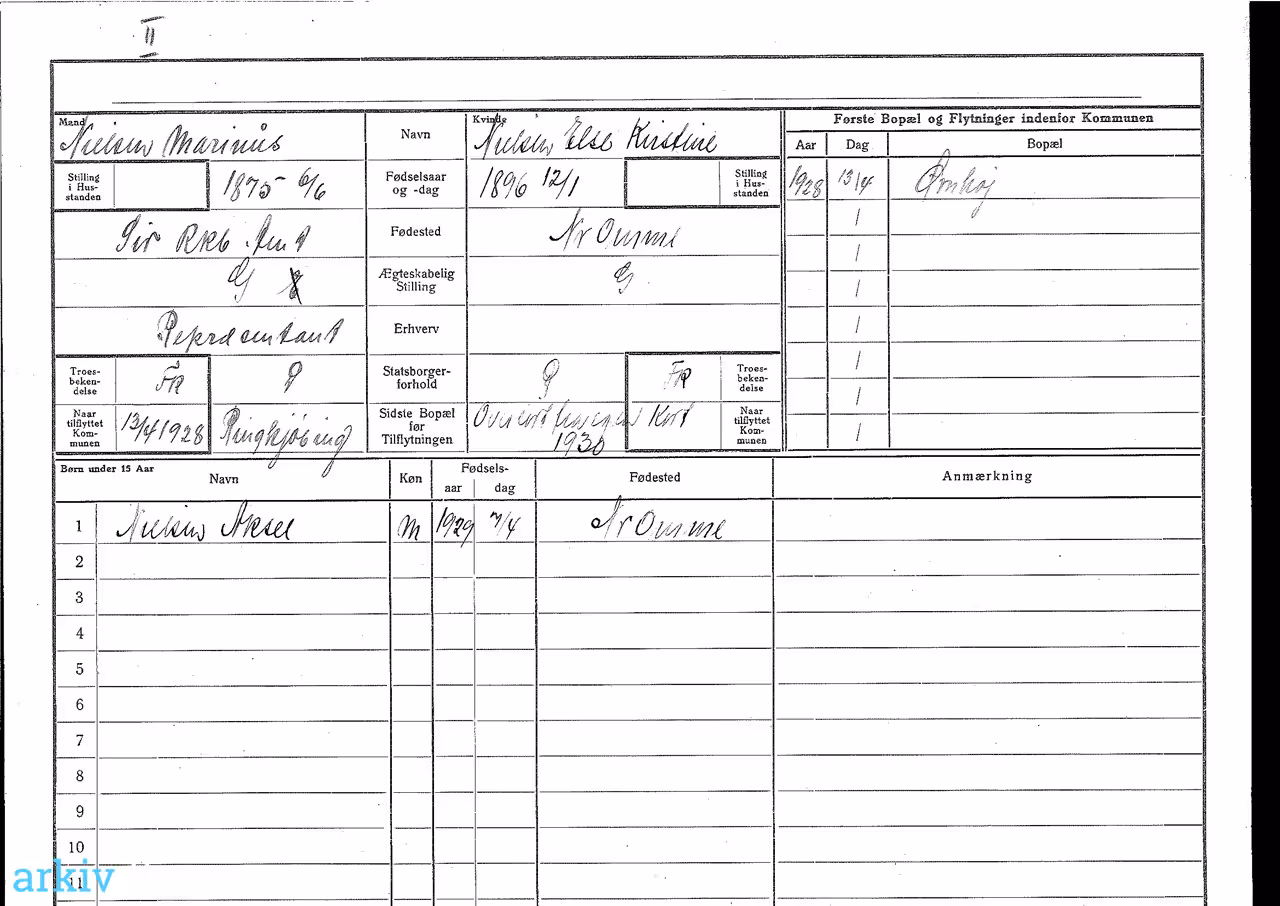 II
Mand
Nielsen Marinus
Navn
Kvinde
Nielsen Else Kirstine
Første Bopæl og Flytninger indenfor Kommunen
Aar
Dag
Bopæl
Stilling
i Hus-
standen
1875 6/6
Fødselsaar
og -dag
1896 12/1
Stilling
i Hus-
standen
1928 13/4 Ørnhøj
Sir Rkb. Amt
Fødested
Nr Omme
/
/
G
Ægteskabelig
Stilling
G
/
Repræsentant
Erhverv
/
Troes-
beken-
delse
FK
Statsborger-
forhold
FK
Troes-
beken-
delse
/
/
Naar
tilflyttet
Kom-
munen
13/4 1928
Ringkjøbing
Sidste Bopæl
før
Tilflytningen
Kort
1930
Naar
tilflyttet
Kom-
munen
/
Børn under 15 Aar
Navn
Køn
Fødsels-
aar
dag
Fødested
Anmærkning
1 Nielsen Aksel M 1929 /4 Nr Omme
2
3
4
5
6
7
8
9
10
11
arkiv